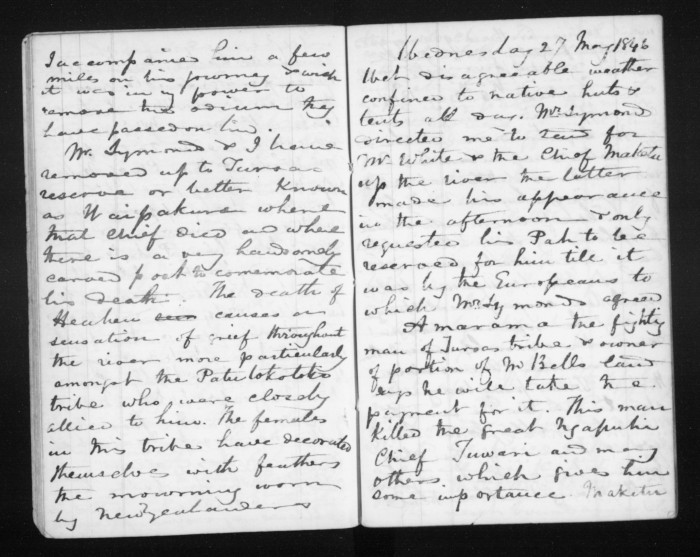 I accompanied him a few
miles on his journey & wish
it was in my power to
remove the odium they
have passed on him.
Mr. Symond & I have
removed up to Turoas
reserve or better known
as Waipakura where
that chief died and where
there is a very handsomely
carved post to comemorate
his death. The death of
Heaheu causes a
sensation of grief throughout
the river more particularly
amongst the Patutokotoko
tribe who were closely
allied to him. The females
in this tribes have decorated
themselves with feathers
the mowrning worn
by New Zealanders
Wednesday 27 May 1846
Wet disagreeable weather
confined to native huts &
tents all day. Mr Symond
directed me to send for
Mr White & the Chief Maketu
up the river the latter
made his appearance
in the afternoon & only
requested his Pah to be
reserved for him till it
was by the Europeans to
which Mr Symonds agreed
Amarama the fighting
man of Turoas tribe & owner
of portion of Mr Bells land
says he will take no
payment for it. This man
killed the great Ngapuhi
Chief Tuwari and many
others which gives him
some importance Maketu